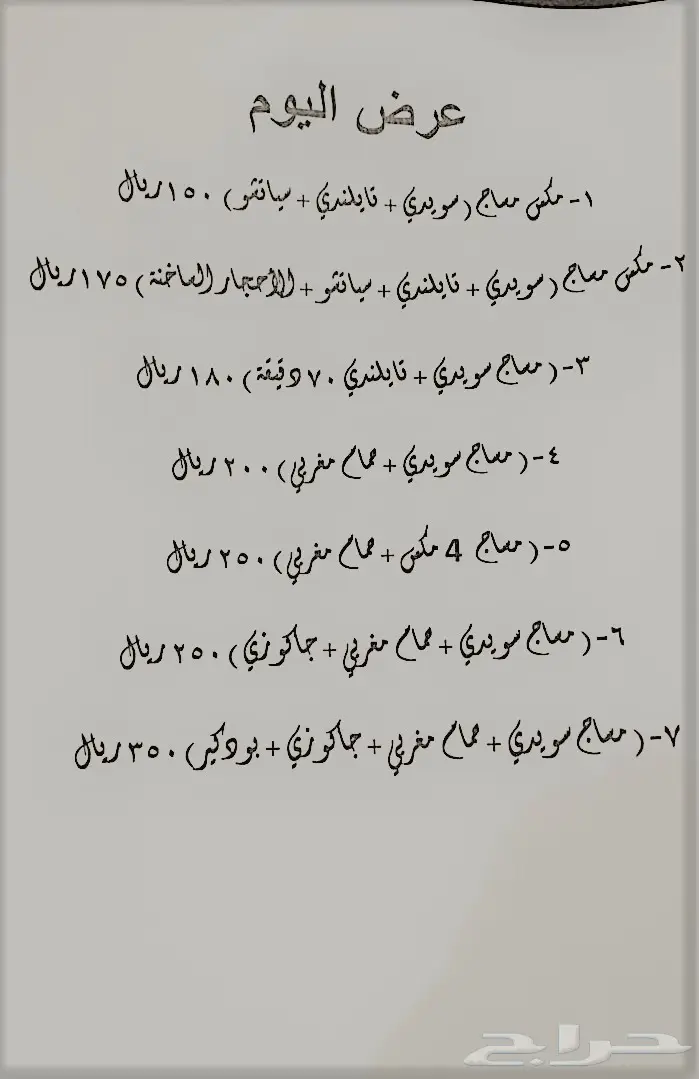 عرض اليوم
١- مكس مساج (سويدي + تايلندي + سياتشو) ١٥٠ ريال
٢- مكس مساج (سويدي + تايلندي + سياتشو + الأحجار الساخنة) ١٧٥ ريال
٣- (مساج سويدي + تايلندي ٧٠ دقيقة) ١٨٠ ريال
٤- (مساج سويدي + حمام مغربي) ٢٠٠ ريال
٥- (مساج 4 مكس + حمام مغربي) ٢٥٠ ريال
٦- (مساج سويدي + حمام مغربي + جاكوزي) ٢٥٠ ريال
٧- (مساج سويدي + حمام مغربي + جاكوزي + بودكير) ٣٥٠ ريال
حراج